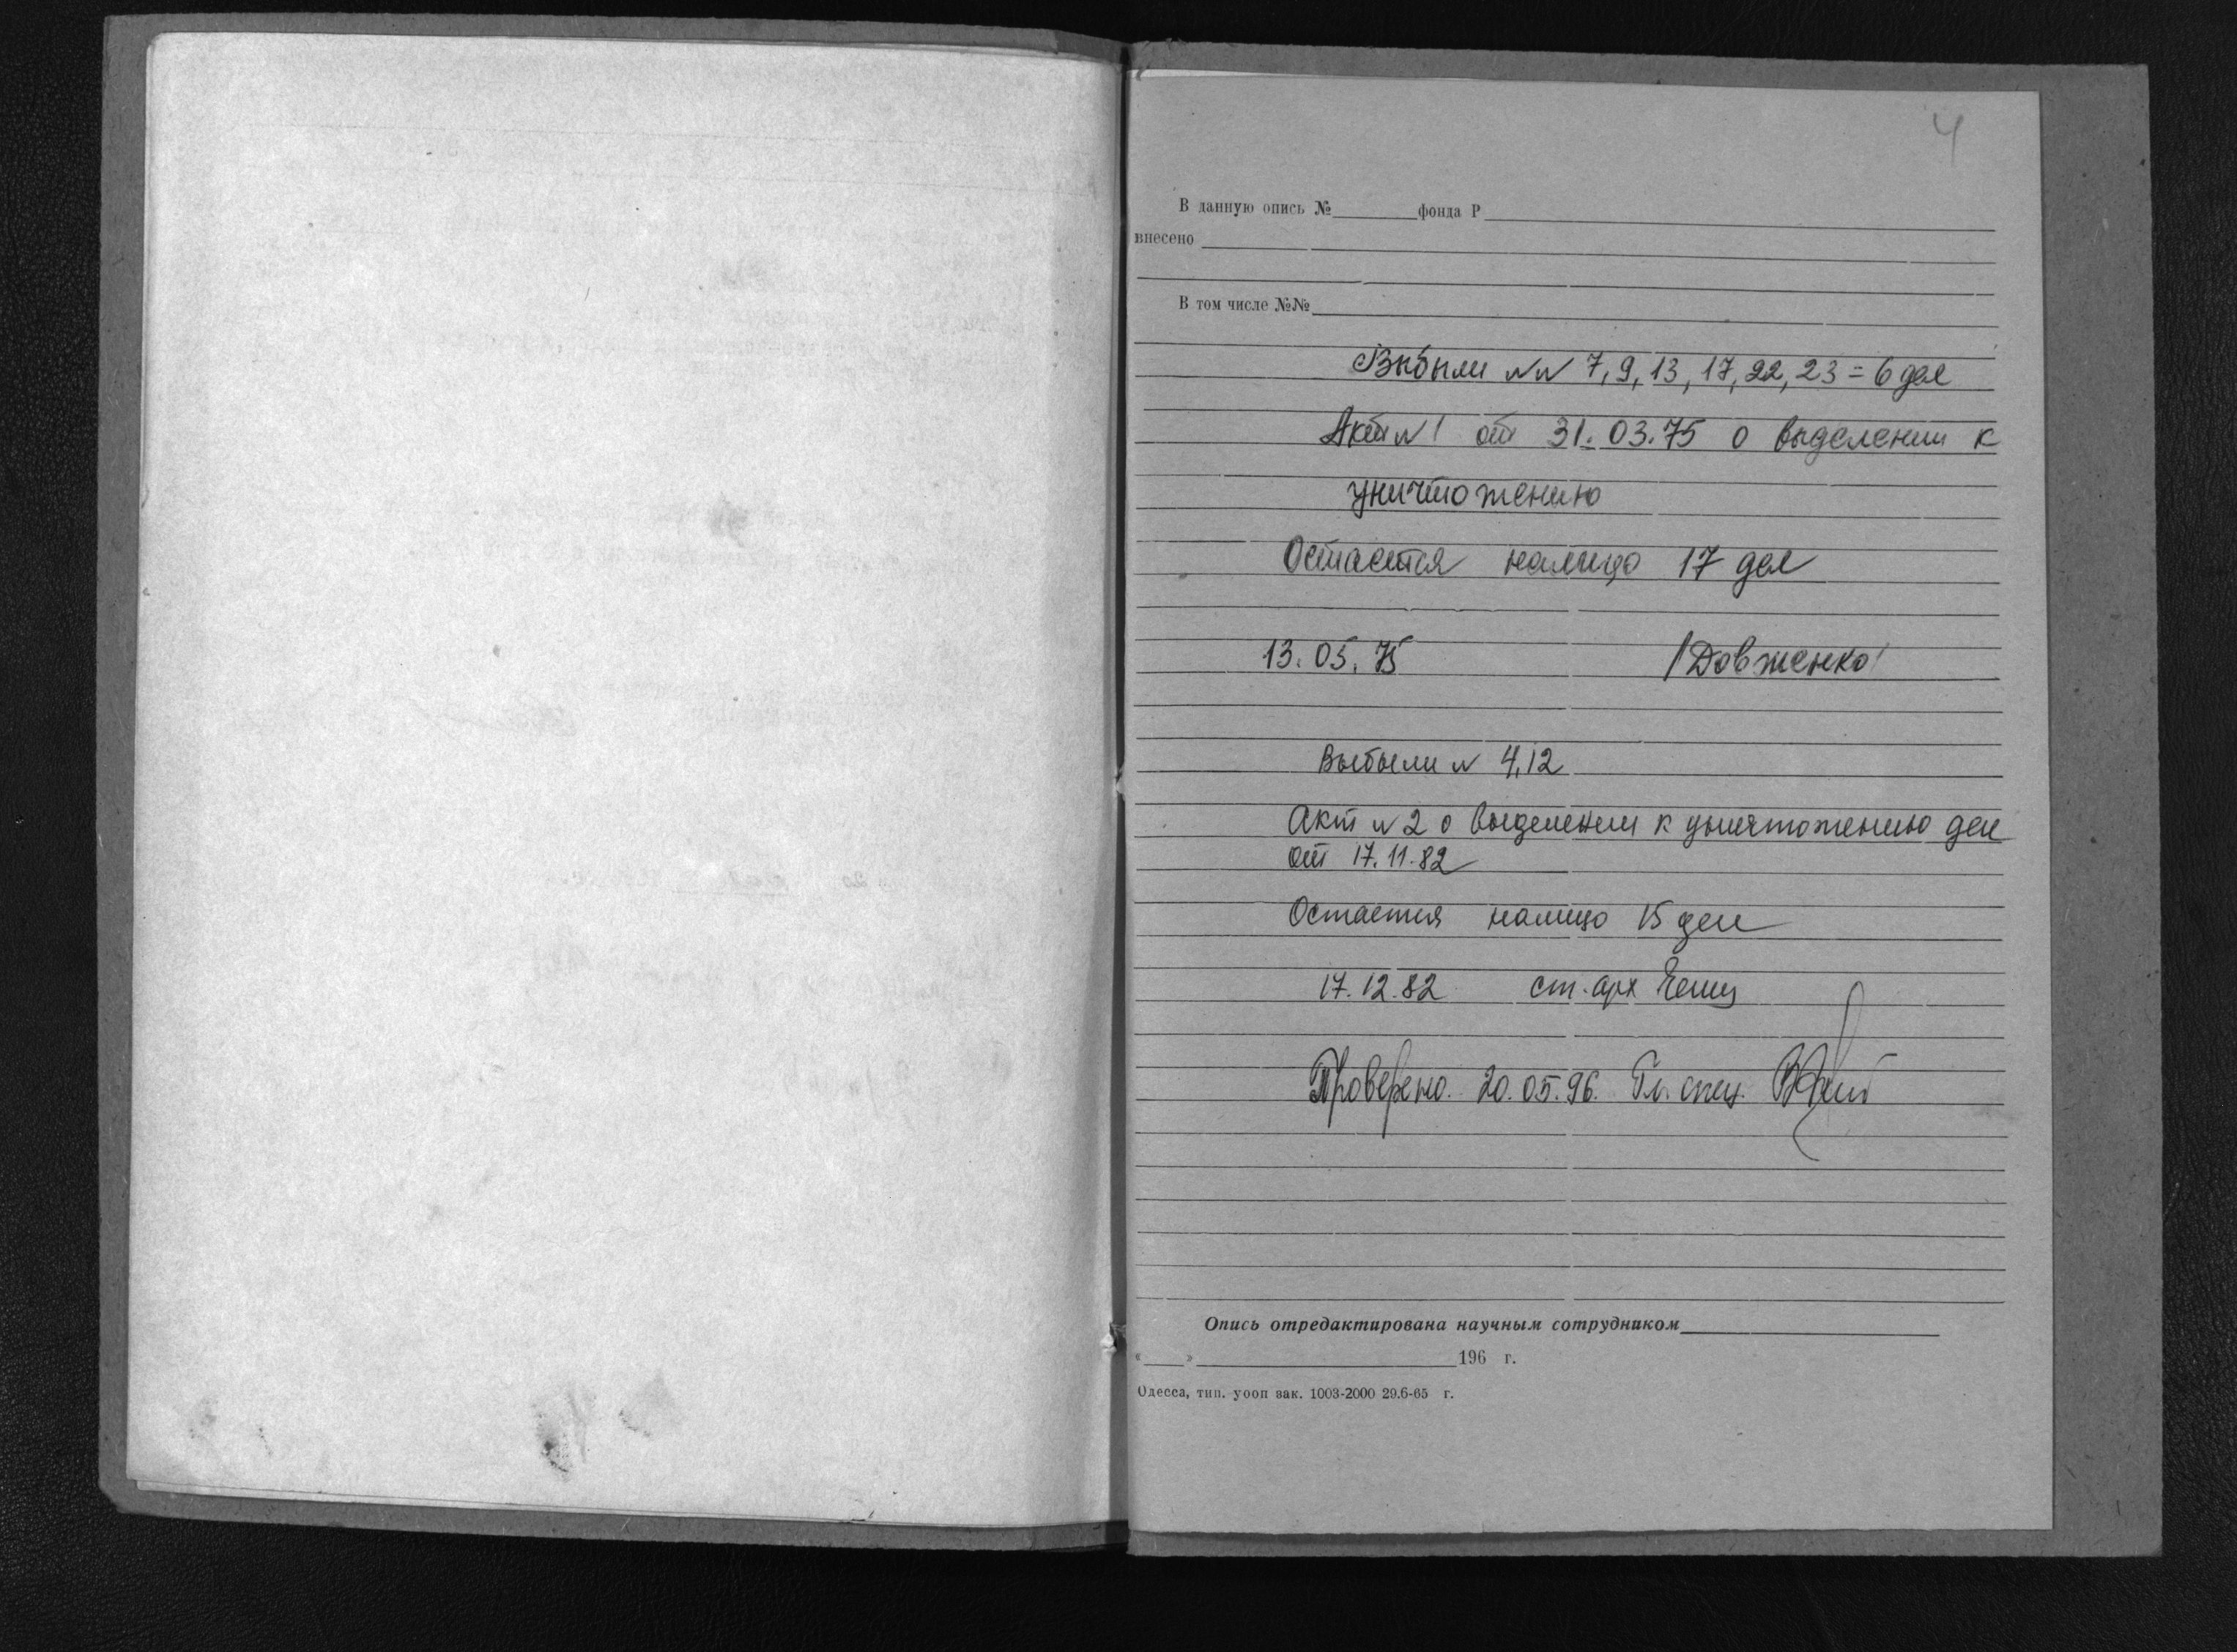 4
В данную опись № фонда Р
внесено
В том числе №№
Выбыли №№ 7, 9, 13, 17, 22, 23 = 6 дел
Акт № 1 от 31.03.75 о выделении к
уничтожению
Остается налицо 17 дел
13.05.75 /Довженко/
Выбыли № 4, 12
Акт № 2 о выделении к уничтожению дел
от 17.11.82
Остается налицо 15 дел
17.12.82 ст. арх
Проверено. 20.05.96. Гл. спец.
Опись отредактирована научным сотрудником
« » 196 г.
Одесса, тип. уооп зак. 1003-2000 29.6-65 г.